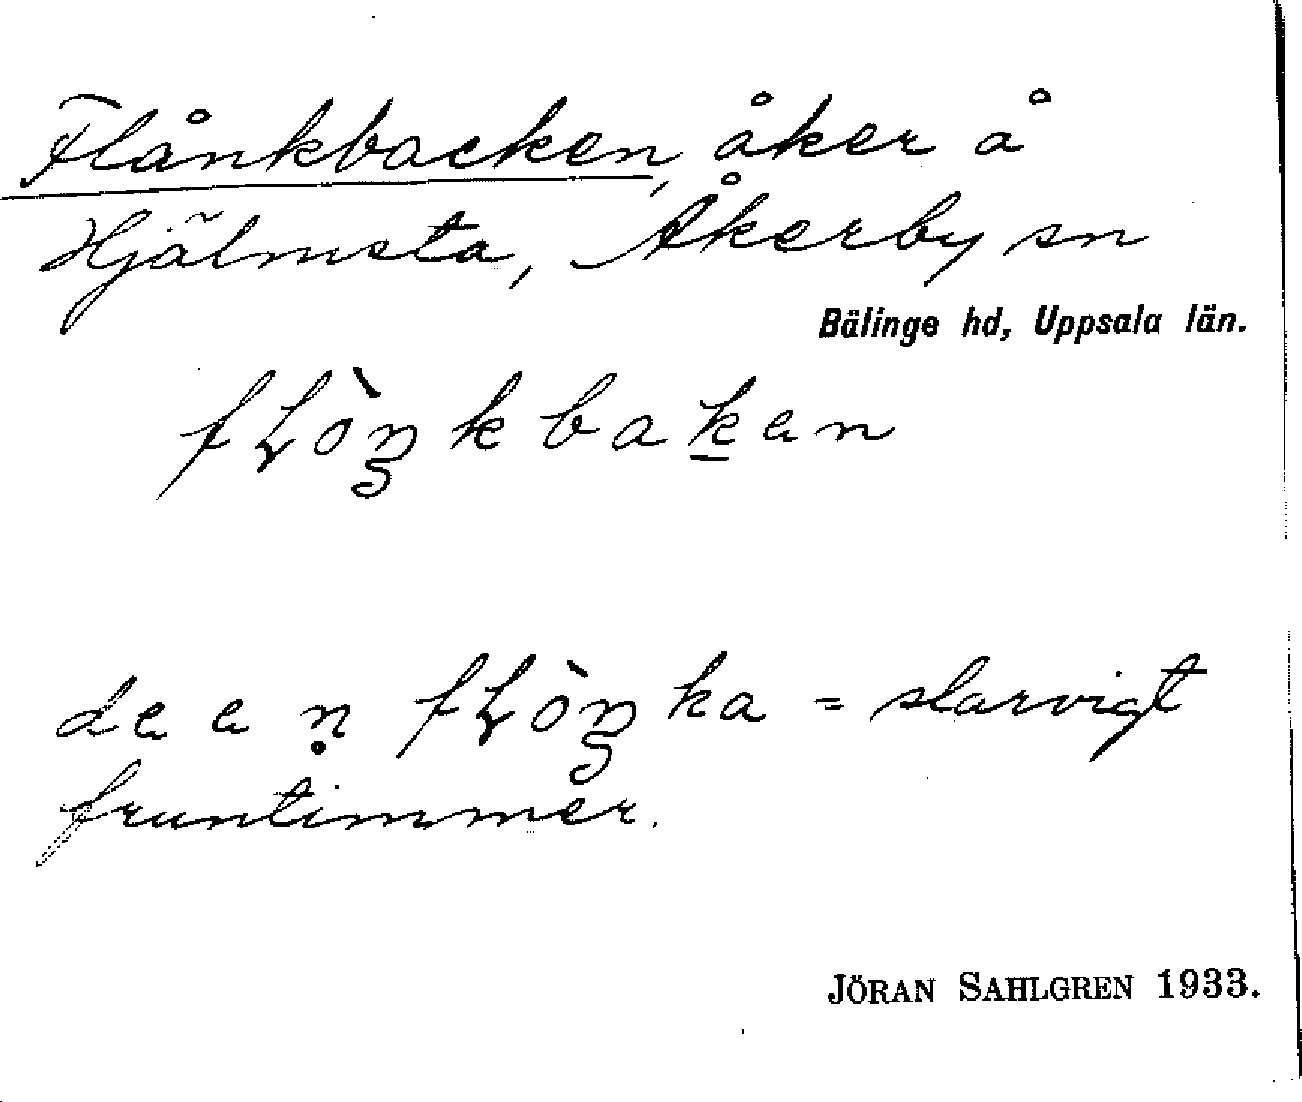 Flånkbacken, åker å
Hjälmsta, Åkerby sn
Bälinge hd, Uppsala län.
fɫòŋkbak̲an
de e ṇ fɫòŋka = slarvigt
fruntimmer.
JÖRAN SAHLGREN 1933.